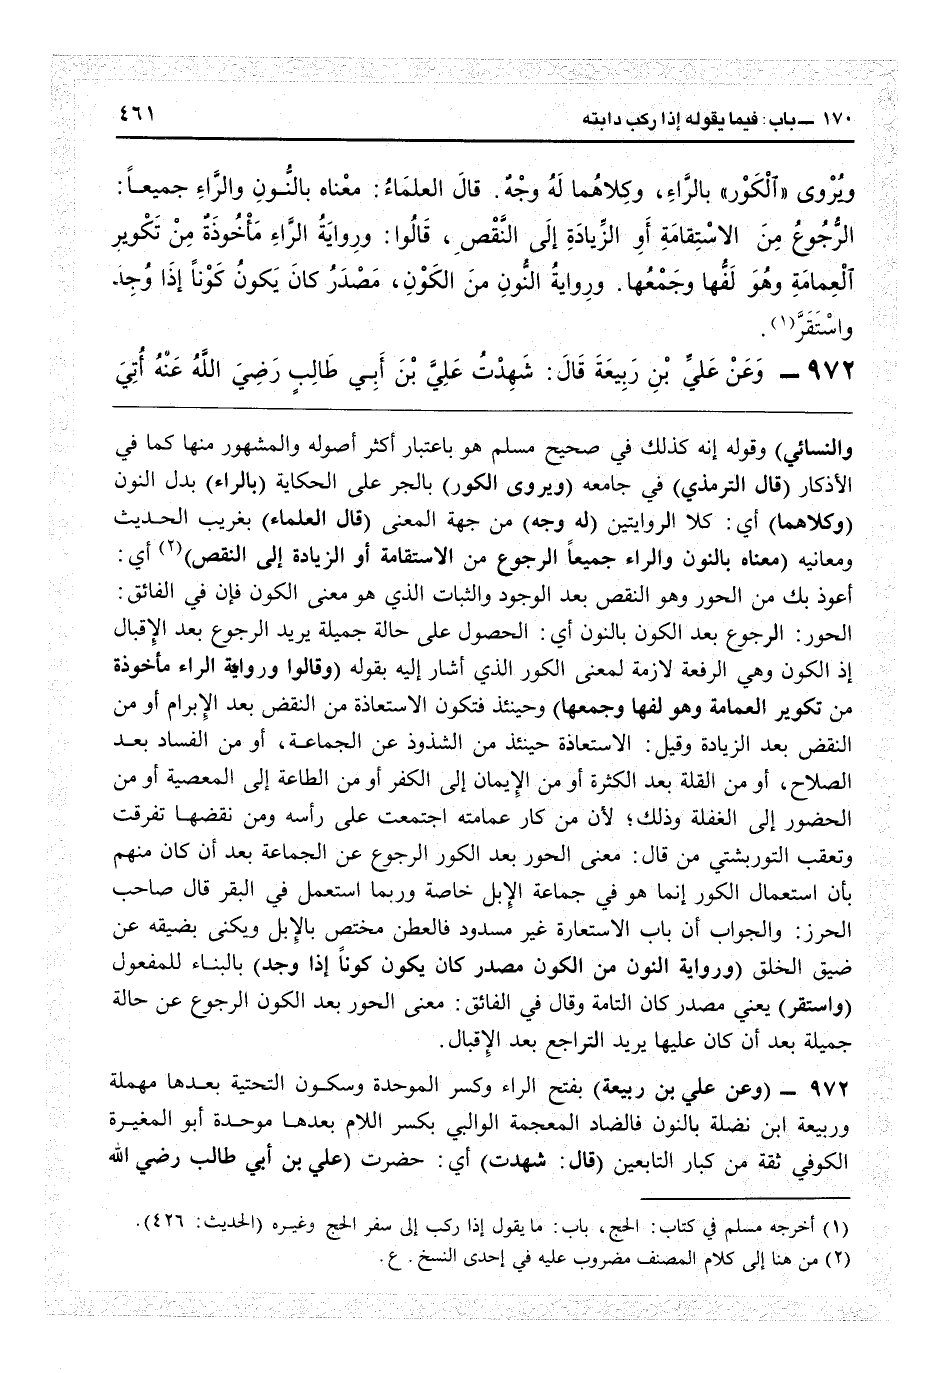 ١٧٠ ــ باب: فيما يقوله إذا ركب دابته
٤٦١
ويُرْوى «ٱلْكَوْر» بالرَّاءِ، وكِلاهُما لَهُ وجْهٌ. قالَ العلمَاءُ: معْناه بالنُّـونِ والرَّاءِ جميعـاً:
الرُّجُوعُ مِنَ الاسْتِقامَةِ أَوِ الزِّيادَةِ إلَى النَّقْصِ، قَالُوا: ورِوايَةُ الرَّاءِ مَأْخُوذَةٌ مِنْ تَكْوِيرِ
ٱلْعِمامَةِ وهُوَ لَفُّها وجَمْعُها. ورِوايةُ النُّونِ منَ الكَوْنِ، مَصْدَرُ كانَ يَكونُ كَوْناً إذَا وُجِدَ
واسْتَقَرَّ(١).
٩٧٢ ــ وَعَنْ عَليِّ بْنِ رَبِيعَةَ قَالَ: شَهِدْتُ عَلِيَّ بْنَ أَبِـي طَالِبٍ رَضِيَ اللَّهُ عَنْهُ أُتِيَ
والنسائي) وقوله إنه كذلك في صحيح مسلم هو باعتبار أكثر أصوله والمشهور منها كما في
الأذكار (قال الترمذي) في جامعه (ويروى الكور) بالجر على الحكاية (بالراء) بدل النون
(وكلاهما) أي: كلا الروايتين (له وجه) من جهة المعنى (قال العلماء) بغريب الحـديث
ومعانيه (معناه بالنون والراء جميعاً الرجوع من الاستقامة أو الزيادة إلى النقص)(٢) أي:
أعوذ بك من الحور وهو النقص بعد الوجود والثبات الذي هو معنى الكون فإن في الفائق:
الحور: الرجوع بعد الكون بالنون أي: الحصول على حالة جميلة يريد الرجوع بعد الإقبال
إذ الكون وهي الرفعة لازمة لمعنى الكور الذي أشار إليه بقوله (وقالوا ورواية الراء مأخوذة
من تكوير العمامة وهو لفها وجمعها) وحينئذ فتكون الاستعاذة من النقض بعد الإبرام أو من
النقض بعد الزيادة وقيل: الاستعاذة حينئذ من الشذوذ عن الجماعـة، أو من الفساد بعـد
الصلاح، أو من القلة بعد الكثرة أو من الإيمان إلى الكفر أو من الطاعة إلى المعصية أو من
الحضور إلى الغفلة وذلك؛ لأن من كار عمامته اجتمعت على رأسه ومن نقضهـا تفرقت
وتعقب التوربشتي من قال: معنى الحور بعد الكور الرجوع عن الجماعة بعد أن كان منهم
بأن استعمال الكور إنما هو في جماعة الإبل خاصة وربما استعمل في البقر قال صاحب
الحرز: والجواب أن باب الاستعارة غير مسدود فالعطن مختص بالإبل ويكنى بضيقه عن
ضيق الخلق (ورواية النون من الكون مصدر كان يكون كوناً إذا وجد) بالبنـاء للمفعول
(واستقر) يعني مصدر كان التامة وقال في الفائق: معنى الحور بعد الكون الرجوع عن حالة
جميلة بعد أن كان عليها يريد التراجع بعد الإقبال.
٩٧٢ ــ (وعن علي بن ربيعة) بفتح الراء وكسر الموحدة وسكـون التحتية بعـدها مهملة
وربيعة ابن نضلة بالنون فالضاد المعجمة الوالبي بكسر اللام بعدهـا موحـدة أبو المغيرة
الكوفي ثقة من كبار التابعين (قال: شهدت) أي: حضرت (علي بن أبي طالب رضي الله
(١) أخرجه مسلم في كتاب: الحج، باب: ما يقول إذا ركب إلى سفر الحج وغيـره (الحديث: ٤٢٦).
(٢) من هنا إلى كلام المصنف مضروب عليه في إحدى النسخ. ع.